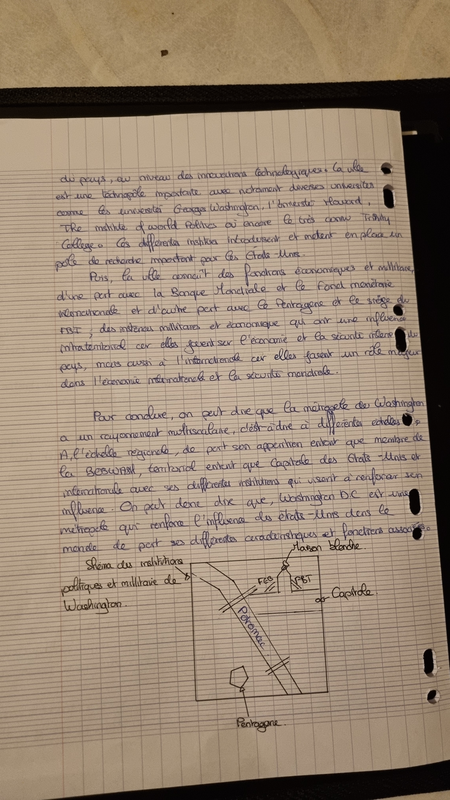 du pays, au niveau des innovations technologiques. La ville
est une technopôle importante avec notament diverses universités
comme les universités Georges Washington, l'université Howard,
The institute of world Politics ou encore le très connu Trinity
College. Ces différentes institution introduisent et mettent en place un
pôle de recherche important pour les États-Unis.
Puis, la ville connaît des fonctions économiques et militaire,
d'une part avec la Banque Mondiale et le Fond monétaire
internationale et d'autre part avec le Pentagone et le siège du
FBI, des instances militaires et économique qui ont une influence
intraterritorial car elles favorisent l'économie et la sécurité interne du
pays, mais aussi à l'international car elles jouent un rôle majeur
dans l'économie internationale et la sécurité mondiale.
Pour conclure, on peut dire que la métropole de Washington
a un rayonnement multiscalaire, c'est-à-dire à différentes echelles.
A l'échelle régionale, de part son apparition entant que membre de
la BOSWASH, territorial entant que Capitale des États-Unis et
internationale avec ses différentes institutions qui visent à renforcer son
influence. On peut donc dire que, Washington D.C est une
métropole qui renforce l'influence des États-Unis dans le
monde de part ses différentes caractéristiques et fonctions associées.
Shéma des institutions
politiques et militaire de
Washington.
Maison blanche
FBI
Capitole.
Potomac
Pentagone.